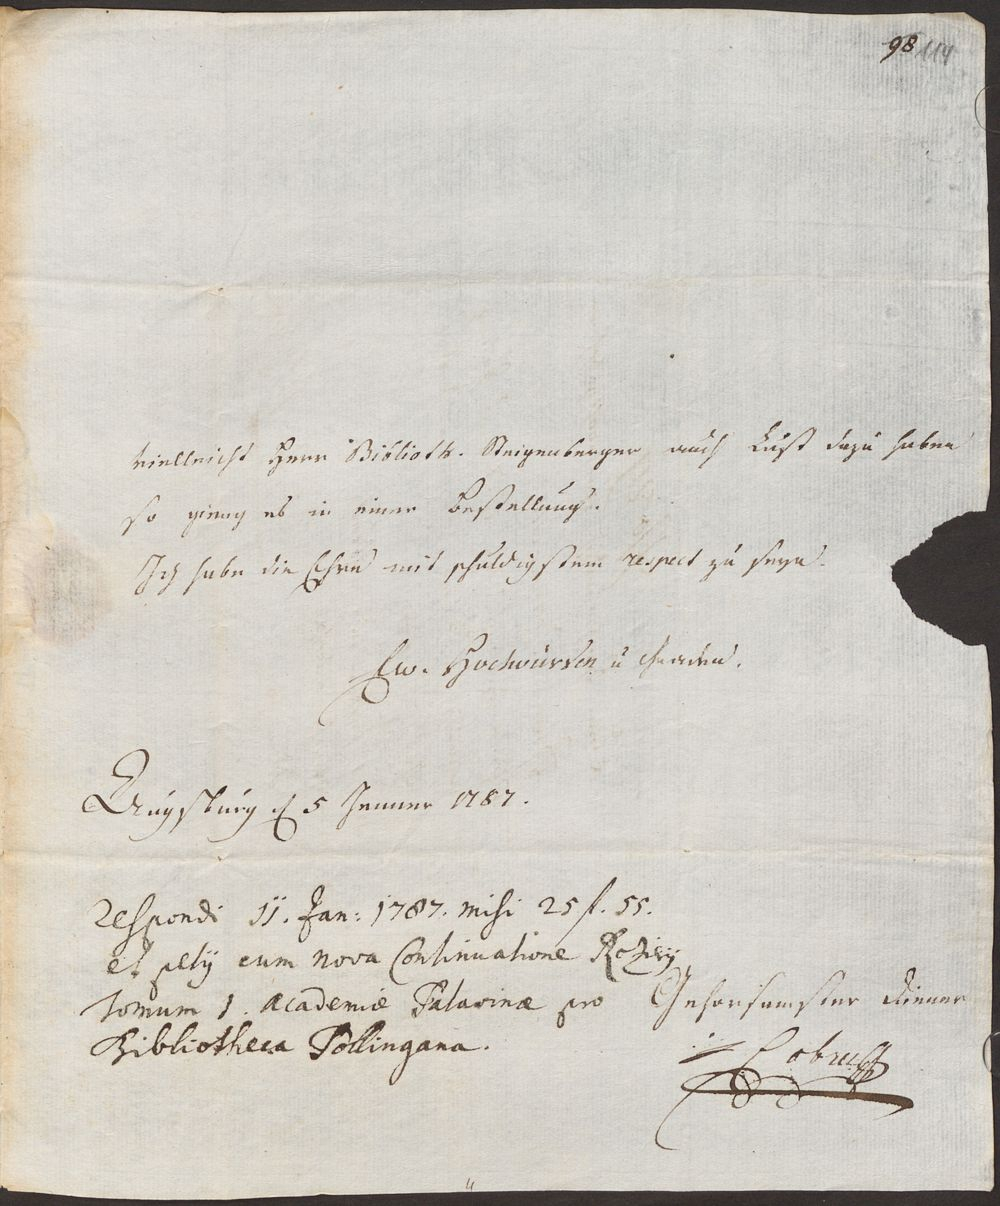 98 114
vielleicht Herr Biblioth. Steigenberger auch Lust dazu haben
so gieng es in einer Bestellung.
Ich habe die Ehre mit schuldigstem respect zu seyn.
Ew. Hochwürden u Gnaden.
Augsburg d 5 Jenner 1787.
respondi 11. Jan: 1787. misi 25 f. 55.
et petij cum nova Continuatione Rozierij
tomum 1. Academiæ Patavinæ pro
Bibliotheca Pollingana.
Gehorsamster Diener